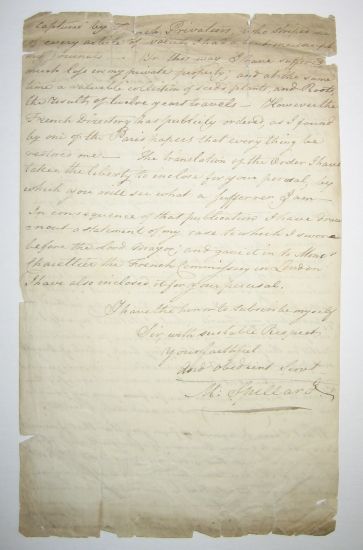 captured by French Privateers, who stripped me
of every article of value I had about me except
my Journals — In this way I have suffered
much loss in my private property, and at the same
time a valuable collection of seeds, plants, and Roots,
the result of twelve years travels — However the
French Directory has publicly ordered, as I found
by one of the Paris papers that every thing be
restored me — The translation of the Order I have
taken the liberty to inclose for your perusal, by
which you will see what a sufferer I am
In consequence of that publication I have drawn
out a statement of my case to which I swore
before the Lord Mayor, and gave it in to
the French Commissary in London
I have also inclosed it for your perusal.
I have the honor to subscribe myself
Sir, with suitable Respect
Your faithful
and obedient Servt
M. Spillard